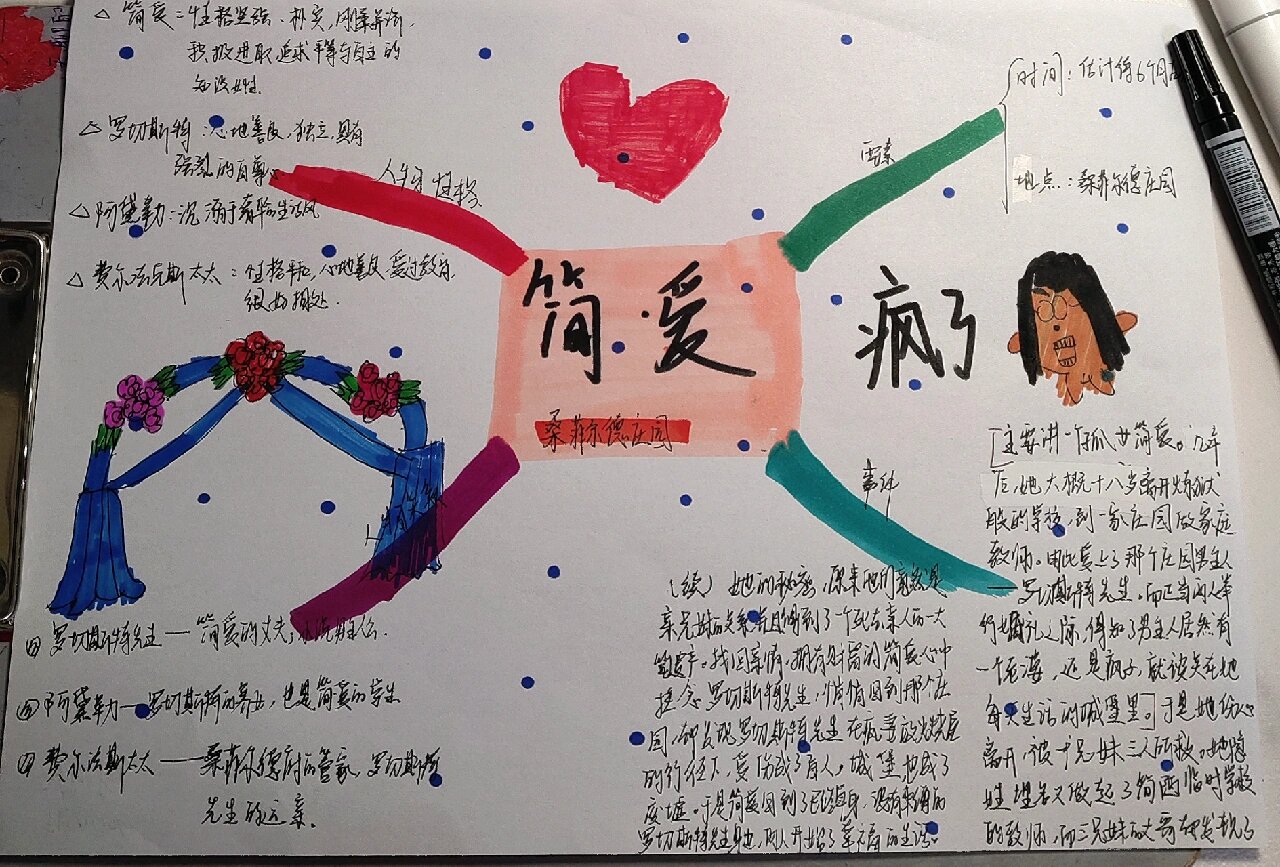 △ 简爱：性格坚强、朴实、刚柔并济
积极进取追求平等与自主的
知识女性
△ 罗切斯特：心地善良，独立，具有
强烈的自尊心
△ 阿黛拿力：沉湎于奢华的生活风
△ 费尔法斯太太：性格平和，心地善良，受过教育
很好相处
人物性格
要素
时间：估计得6个月
地点：桑菲尔德庄园
简·爱
桑菲尔德庄园
疯了
人物关系
事件
罗切斯特先生——简爱的丈夫
阿黛拿力——罗切斯特的养女，也是简爱的学生
费尔法斯太太——桑菲尔德府的管家，罗切斯特
先生的远亲.
[主要讲一个孤女简爱。几年
后，她大概十八岁离开炼狱
般的学校，到一家庄园做家庭
教师。由此爱上了那个庄园男主人
——罗切斯特先生，而正当两人举
行婚礼之际，得知了男主人居然有
一个妻，还是疯子，就被关在她
每天生活的城堡里]于是她伤心
离开，被一兄妹三人所救。她隐
姓埋名又做起了简陋临时学校
的教师，而三兄妹的大哥却发现了
（续）她的秘密，原来他们竟然是
亲兄妹的关系，而且得到了一个死去亲人的一大
笔遗产。找回亲情，拥有财富的简爱心中
挂念罗切斯特先生，悄悄回到那个庄
园，却发现罗切斯特先生在疯妻放火烧屋
的行径下，受伤成了盲人，城堡也成了
废墟。于是简爱回到了
罗切斯特先生身边，两人开始了幸福的生活。